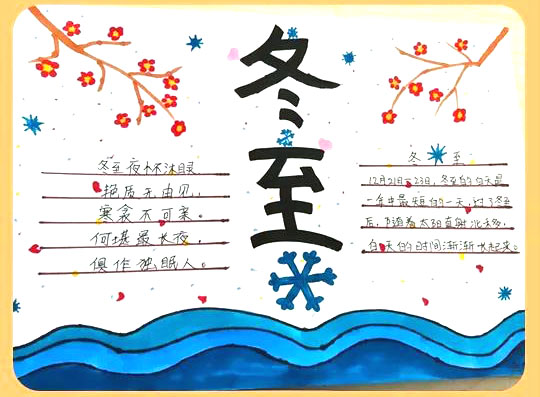 冬至
冬至夜怀
艳质无由见，
寒衾不可亲。
何堪最长夜，
俱作独眠人。
冬 至
12月21日—23日，冬至的白天是
一年中最短的一天，过了冬至
后，随着太阳直射北移，
白天的时间渐渐长起来。